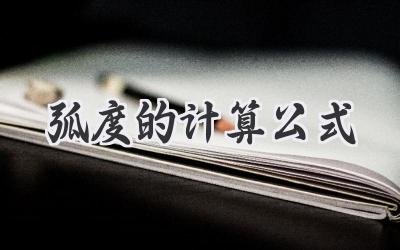 弧度的计算公式